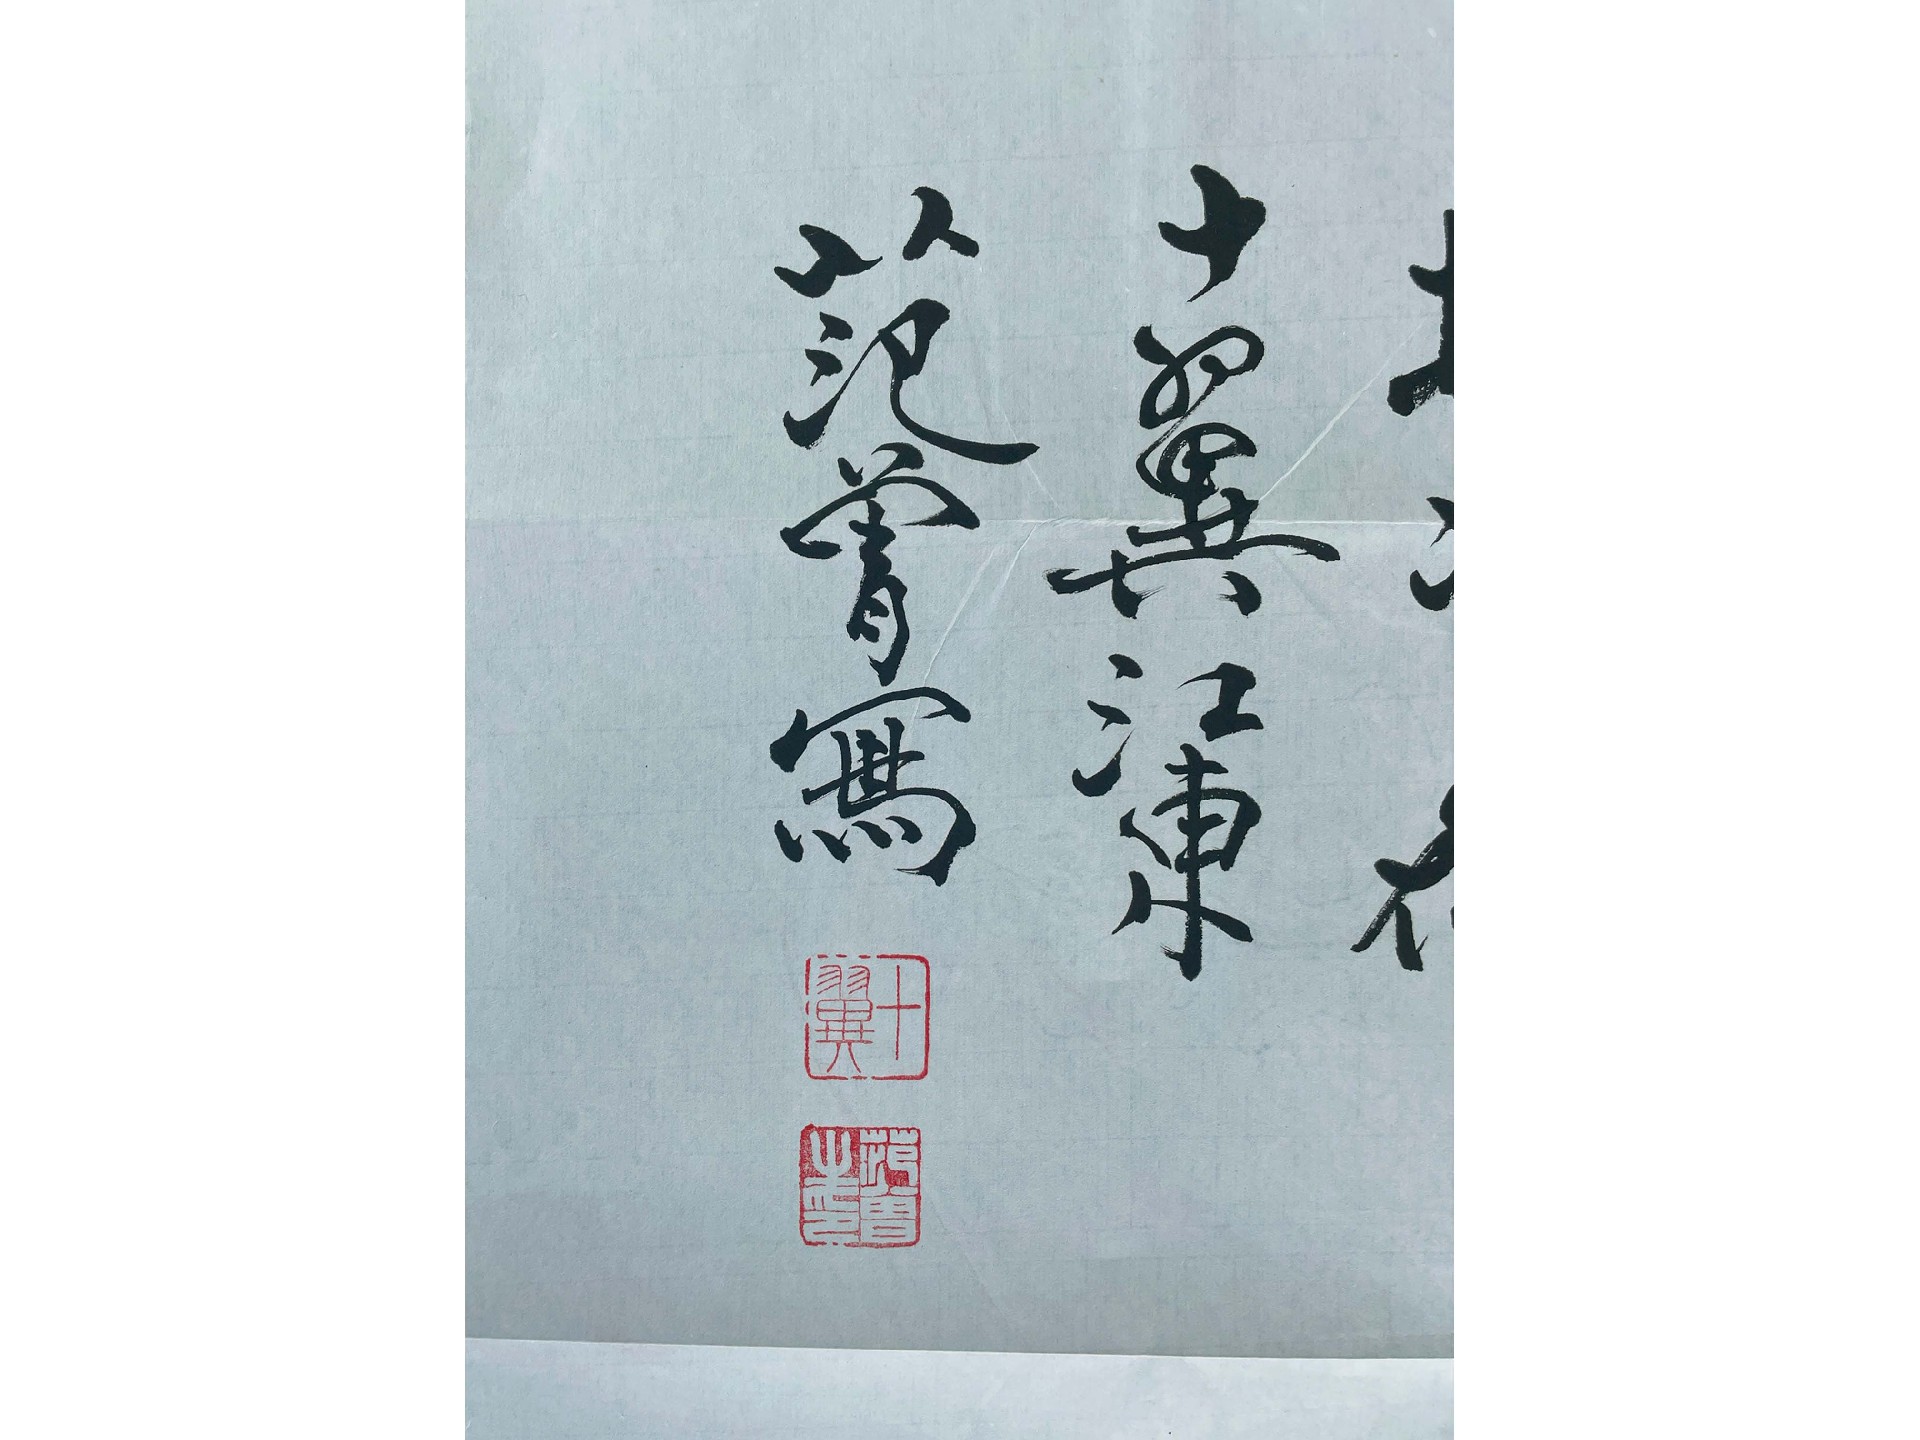 十翼江東
范曾寫
十翼
范曾之鉨